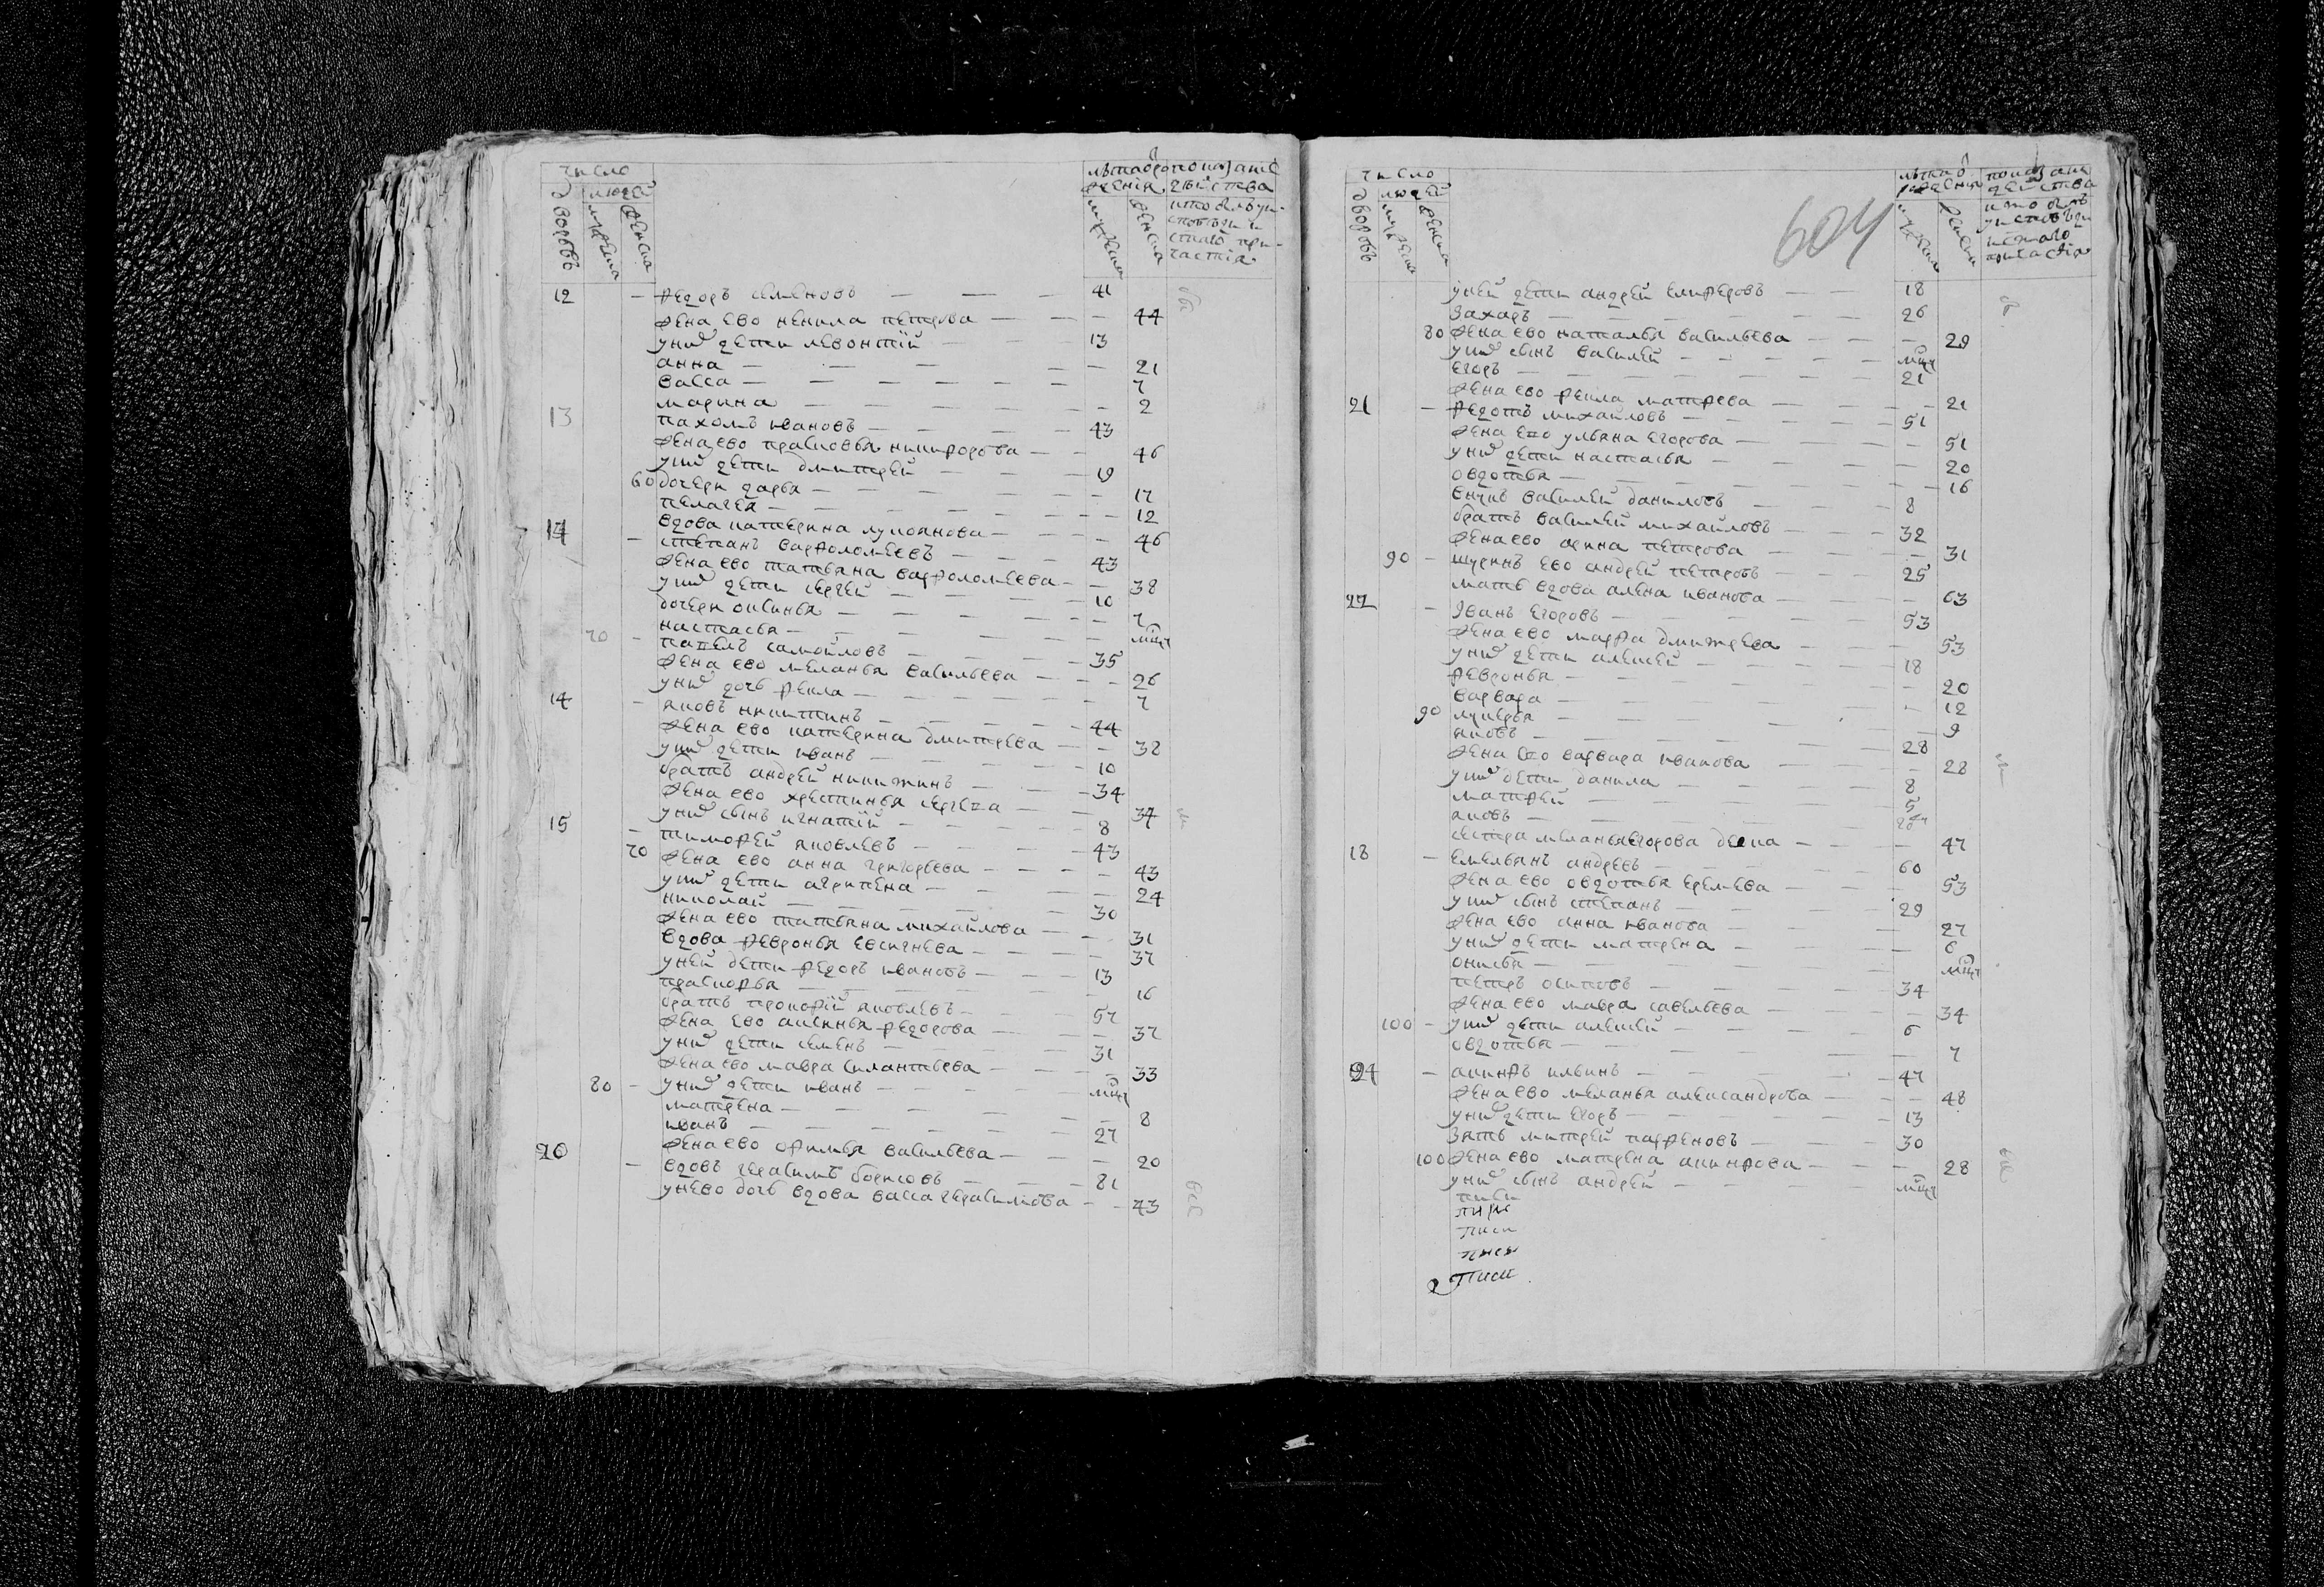 число
дворовъ
людей
мужеска
женска
лѣта ро
жденія
мужеска
женска
показаніе
действа
кто былъ у ис
повѣди и
святаго при
частія
12 — Федоръ семеновъ — — — 41
жена ево ненила петрова — — — 44
у них дети левонтїй — — 13
анна — — — — 21
васса — — — — — 7
марина — — — — 2
13 пахомъ ивановъ — — — — 43
жена ево прасковья никифорова — — 46
у них дети дмитрей — — — 19
60 дочери дарья — — — — 17
пелагея — — — — — 12
вдова катерина лукоянова — — — 46
14 — степанъ варфоломеевъ — — — 43
жена ево татьяна варфоломеева — — 38
у них дети сергей — — — — 10
дочери аксинья — — — — 7
настасья — — — — мцъ
70 — павелъ самойловъ — — — — 35
жена ево меланья васильева — — — 26
у них дочь фекла — — — — 7
14 — яковъ никитинъ — — — — 44
жена ево катерина дмитрева — — 38
у них дети иванъ — — — 10
братъ андрей никитинъ — — — 34
жена ево хрестинья сергева — — 34
у них сынъ игнатїй — — — — 8
15 — тимофей яковлевъ — — — 43
70 жена ево анна григорьева — — — 43
у них дети агрипена — — — 24
николай — — — — — 30
жена ево татьяна михайлова — — — 31
вдова февронья евсигнева — — — 37
у ней дети федоръ ивановъ — — 13
прасковья — — — — — 16
братъ прокофїй яковлевъ — — — 57
жена ево аксинья федорова — — — 37
у них дети семенъ — — — — 31
жена ево мавра силантьева — — — 33
80 — у них дети иванъ — — — мцъ
матрена — — — — — 8
иванъ — — — — — 27
жена ево офимья васильева — — — 20
20 — вдовъ герасимъ борисовъ — — — 81
у нево дочь вдова васса герасимова — — 43
604
число
дворовъ
людей
мужеска
женска
лѣта
рожденія
мужеска
женска
показане
действа
кто былъ
у исповѣди
и святаго
причастія
у ней дети андрей елиферовъ — — 18
Захаръ — — — — — 26
80 жена ево наталья васильева — — — 29
у них сынъ василей — — — — мцъ
егоръ — — — — — 21
жена ево фекла матфева — — — 21
21 — Федотъ михайловъ — — — 51
жена ево ульяна егорова — — — 51
у них дети настасья — — — — 20
овдотья — — — — — 16
внукъ василей даниловъ — — — 8
братъ василей михайловъ — — — 32
жена ево арина петрова — — — 31
90 — шуринъ ево андрей петровъ — — — 25
мать вдова алена иванова — — — 63
22 — Іванъ егоровъ — — — — 53
жена ево марфа дмитрева — — — 53
у них дети алексей — — — — 18
февронья — — — — — 20
варвара — — — — — 12
90 лукерья — — — — — 9
яковъ — — — — — 28
жена ево варвара иванова — — — 28
у них дети данила — — — 8
матфей — — — — 5
яковъ — — — —
сестра меланья егорова девка — — — 47
18 — емельянъ андревъ — — — 60
жена ево овдотья еремева — — — 53
у них сынъ степанъ — — — 29
жена ево анна иванова — — — 27
у них дети матрена — — — 6
онисья — — — — — мцъ
петръ осиповъ — — — — 34
жена ево мавра савельева — — — 34
100 — у них дети алексей — — — — 6
овдотья — — — — — 7
24 — акинфъ ильинъ — — — — 47
жена ево меланья александрова — — — 48
у них дети егоръ — — — — 13
зять митрей парфеновъ — — — 30
100 жена ево матрена акинфова — — — 28
у них сынъ андрей — — — — мцъ
писи